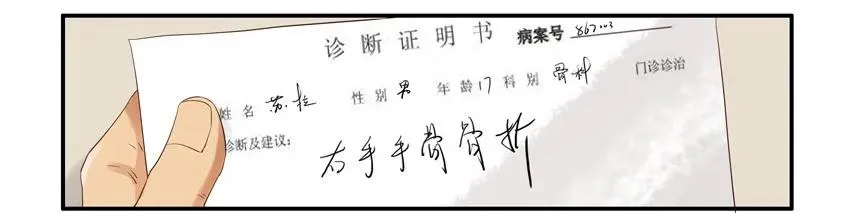 诊断证明书 病案号 867003
姓名 苏拉 性别 男 年龄 17 科别 骨科 门诊诊治
诊断及建议:
右手手骨骨折